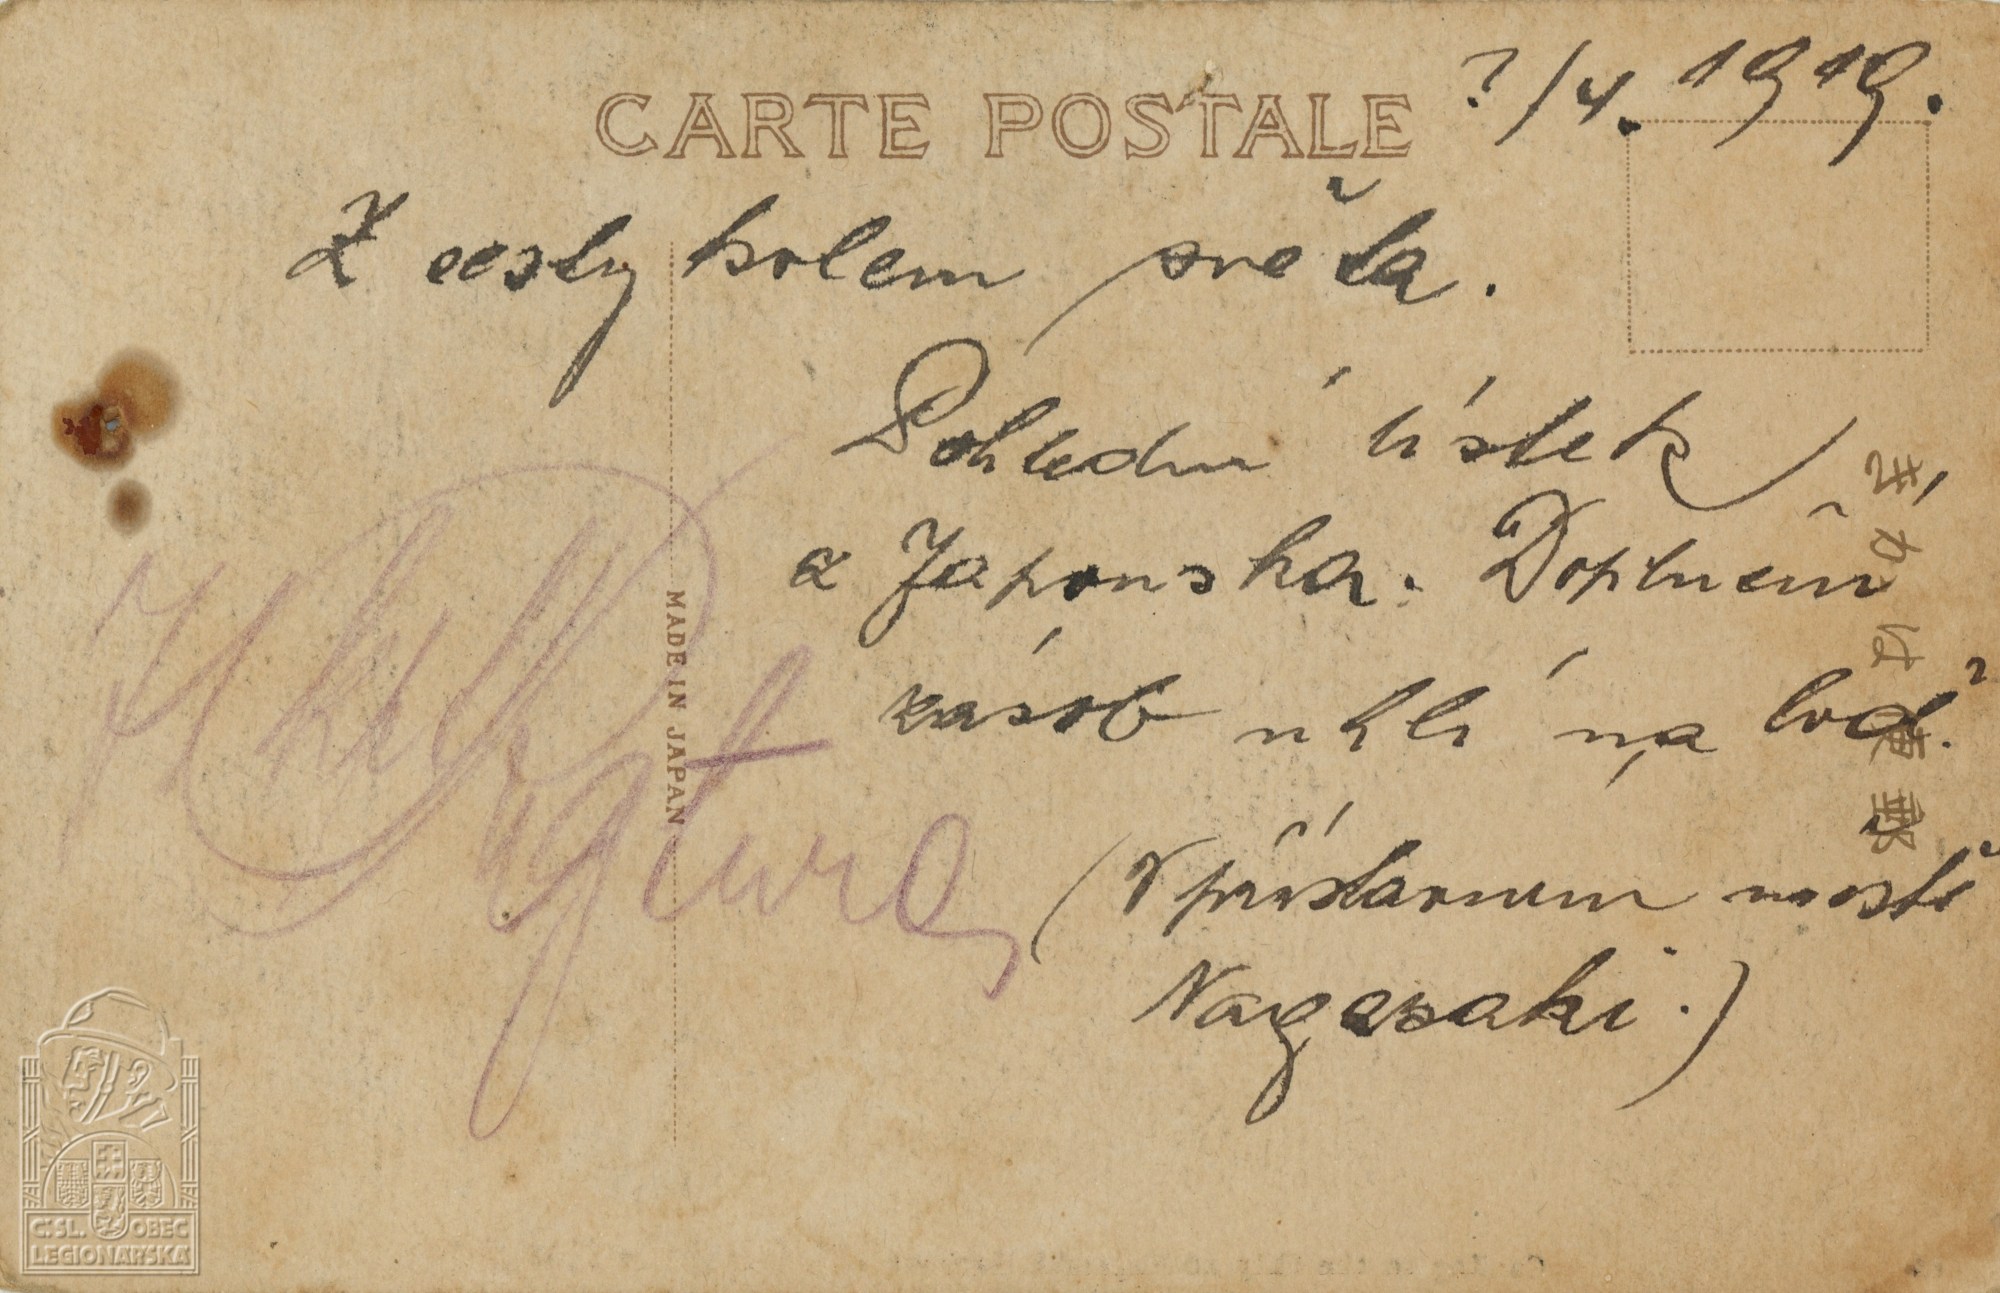 CARTE POSTALE
?/4. 1919.
Z cesty kolem světa.
Pohlední lístek
z Japonska. Doplnění
zásob uhlí na loď.
(V přístavním městě
Nagasaki.)
MADE IN JAPAN
郵便はがき
ČSL. OBEC
LEGIONÁŘSKÁ